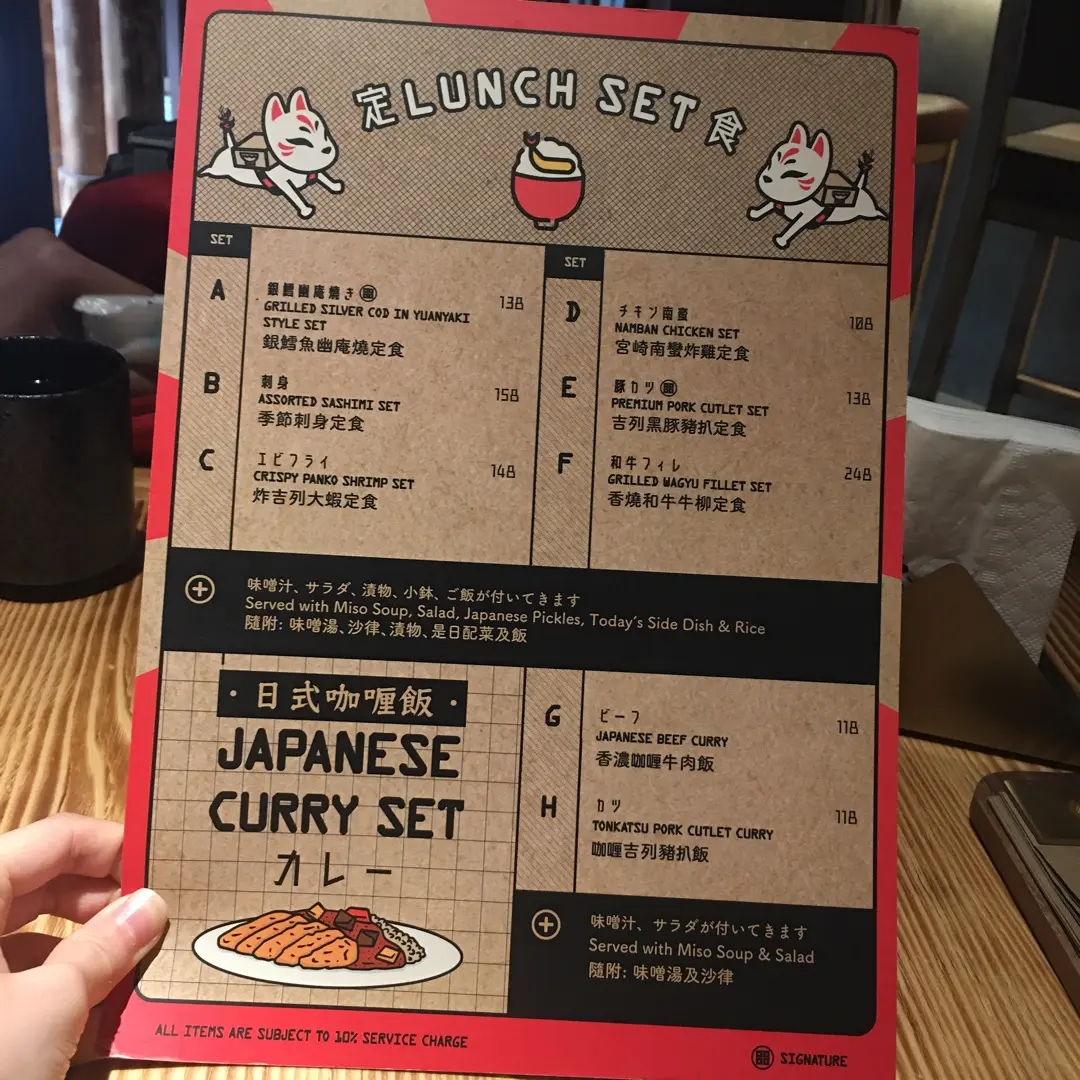 定 LUNCH SET 食
SET
A
銀鱈幽庵焼き
138
GRILLED SILVER COD IN YUANYAKI
STYLE SET
銀鱈魚幽庵燒定食
B
刺身
158
ASSORTED SASHIMI SET
季節刺身定食
C
エビフライ
148
CRISPY PANKO SHRIMP SET
炸吉列大蝦定食
SET
D
チキン南蛮
108
NAMBAN CHICKEN SET
宮崎南蠻炸雞定食
E
豚カツ
138
PREMIUM PORK CUTLET SET
吉列黑豚豬扒定食
F
和牛フィレ
248
GRILLED WAGYU FILLET SET
香燒和牛牛柳定食
味噌汁、サラダ、漬物、小鉢、ご飯が付いてきます
Served with Miso Soup, Salad, Japanese Pickles, Today's Side Dish & Rice
隨附: 味噌湯、沙律、漬物、是日配菜及飯
·日式咖喱飯·
JAPANESE
CURRY SET
オレー
G
ビーフ
118
JAPANESE BEEF CURRY
香濃咖喱牛肉飯
H
カツ
118
TONKATSU PORK CUTLET CURRY
咖喱吉列豬扒飯
味噌汁、サラダが付いてきます
Served with Miso Soup & Salad
隨附: 味噌湯及沙律
ALL ITEMS ARE SUBJECT TO 10% SERVICE CHARGE
SIGNATURE